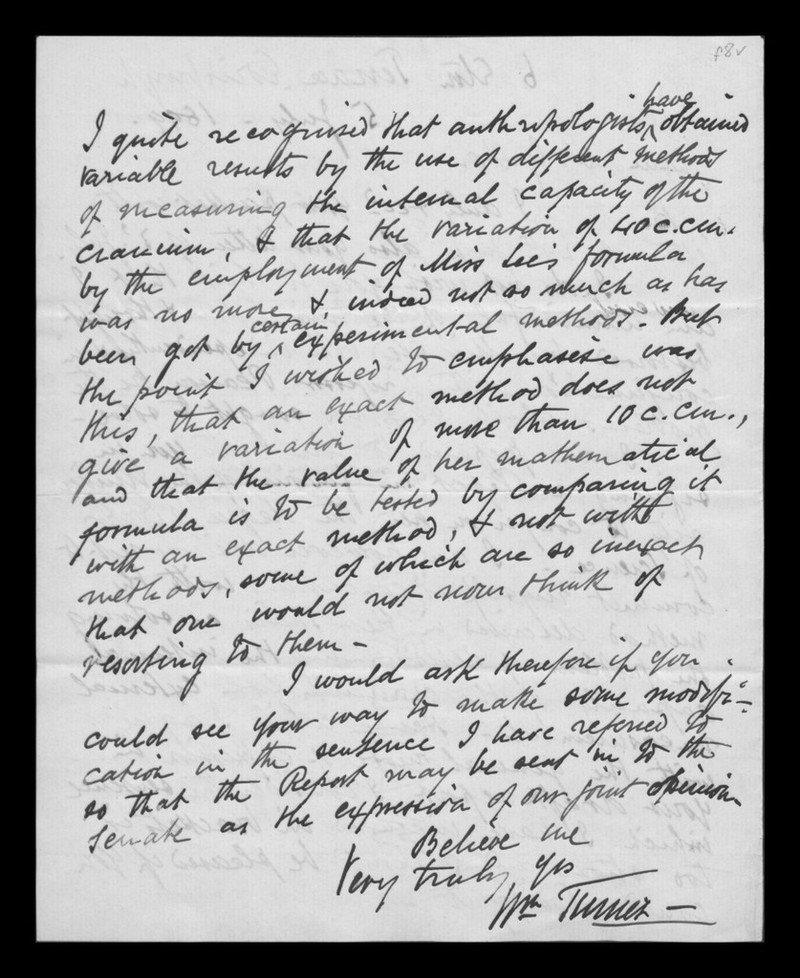 f8v
I quite recognised that anthropologists have obtained
variable results by the use of different methods
of measuring the internal capacity of the
cranium, & that the variation of 40 c.cm.
by the employment of Miss Lee's formula
was no more, & indeed not so much as has
been got by certain experimental methods. But
the point I wished to emphasise was
this, that an exact method does not
give a variation of more than 10 c.cm.,
and that the value of her mathematical
formula is to be tested by comparing it
with an exact method, & not with
methods, some of which are so inexact
that one would not now think of
resorting to them –
I would ask therefore if you
could see your way to make some modifi-
cation in the sentence I have referred to
so that the Report may be sent in to the
Senate as the expression of our joint opinion
Believe me
Very truly yrs
Wm Turner –